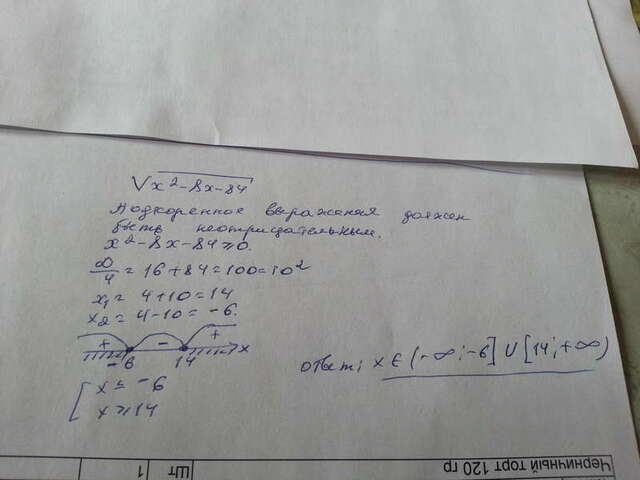 √x²-8x-84
Подкоренное выражения должен
быть неотрицательным.
x²-8x-84≥0.
D/4 = 16+84=100=10²
x₁= 4+10=14
x₂= 4-10= -6.
+ - +
-6 14 x
[ x ≤ -6
x ≥ 14
ответ; x ∈ (-∞;-6] ∪ [14;+∞)
Черничный торт 120 гр шт 1